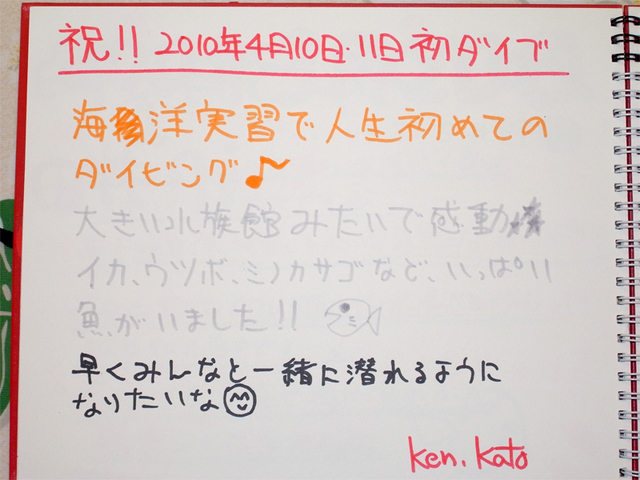 祝!! 2010年4月10日・11日 初ダイブ
海洋実習で人生初めての
ダイビング♪
大きい水族館みたいで感動☆
イカ、ウツボ、ミノカサゴなど、いっぱい
魚がいました!!
早くみんなと一緒に潜れるように
なりたいな
Ken. Kato